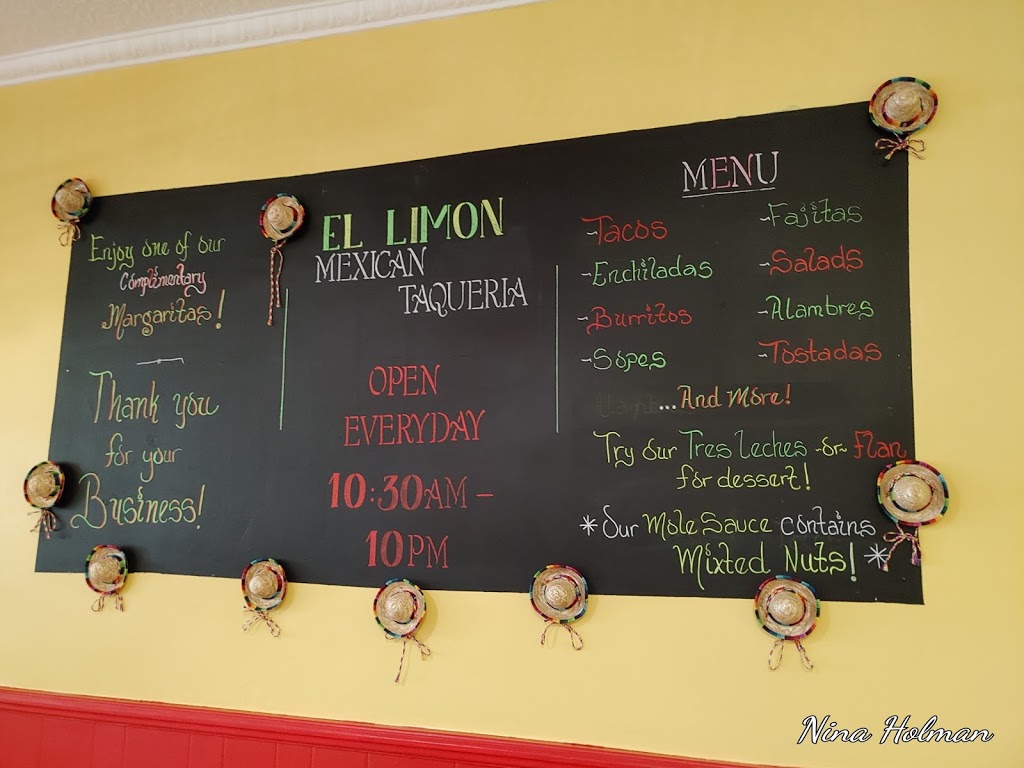 Enjoy one of our
Complimentary
Margaritas!
Thank you
for your
Business!
EL LIMON
MEXICAN
TAQUERIA
OPEN
EVERYDAY
10:30AM –
10PM
MENU
~Tacos
~Enchiladas
~Burritos
~Sopes
~Fajitas
~Salads
~Alambres
~Tostadas
...And More!
Try our Tres Leches ~or~ Flan
for dessert!
*Our Mole Sauce contains
Mixted Nuts!*
Nina Holman